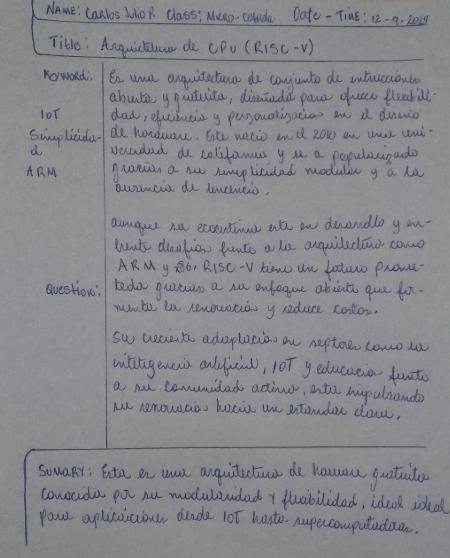 NAME: Carlos Julio P. Class: Micro- Date - TIME: 12-9-2024
Titlo: Arquictetura de CPU (RISC-V)
Keyword:
IoT
Simplicida-
d
ARM
Question:
Es una arquitectura de conjunto de intrucciones
abierta y gratuita, diseñada para ofrece flexibili-
dad, eficiencia y personalizacion en el diseño
de hardware. Este nacio en el 2010 en una uni-
vercidad de california y se a popularizado
gracias a su simplicidad modular y a la
ausencia de
aunque su ecosistima esta en desarollo y en-
frente desafios frente a la arquitectura como
ARM y RISC-V tiene un futuro prome-
tedor gracias a su enfoque abierto que
la renovacion y reduce costos.
Su creciente adaptacion en septores como la
inteligencia artificial, IOT y educacion frente
a su comunidad activa, esta impulsando
su renovacion hacia un estandar clave.
SUMARY: Esta es una arquitectura de gratuita
conocida por su modularidad y flexibilidad, ideal ideal
para aplicaiciones desde IoT hasta supercomputadoras.